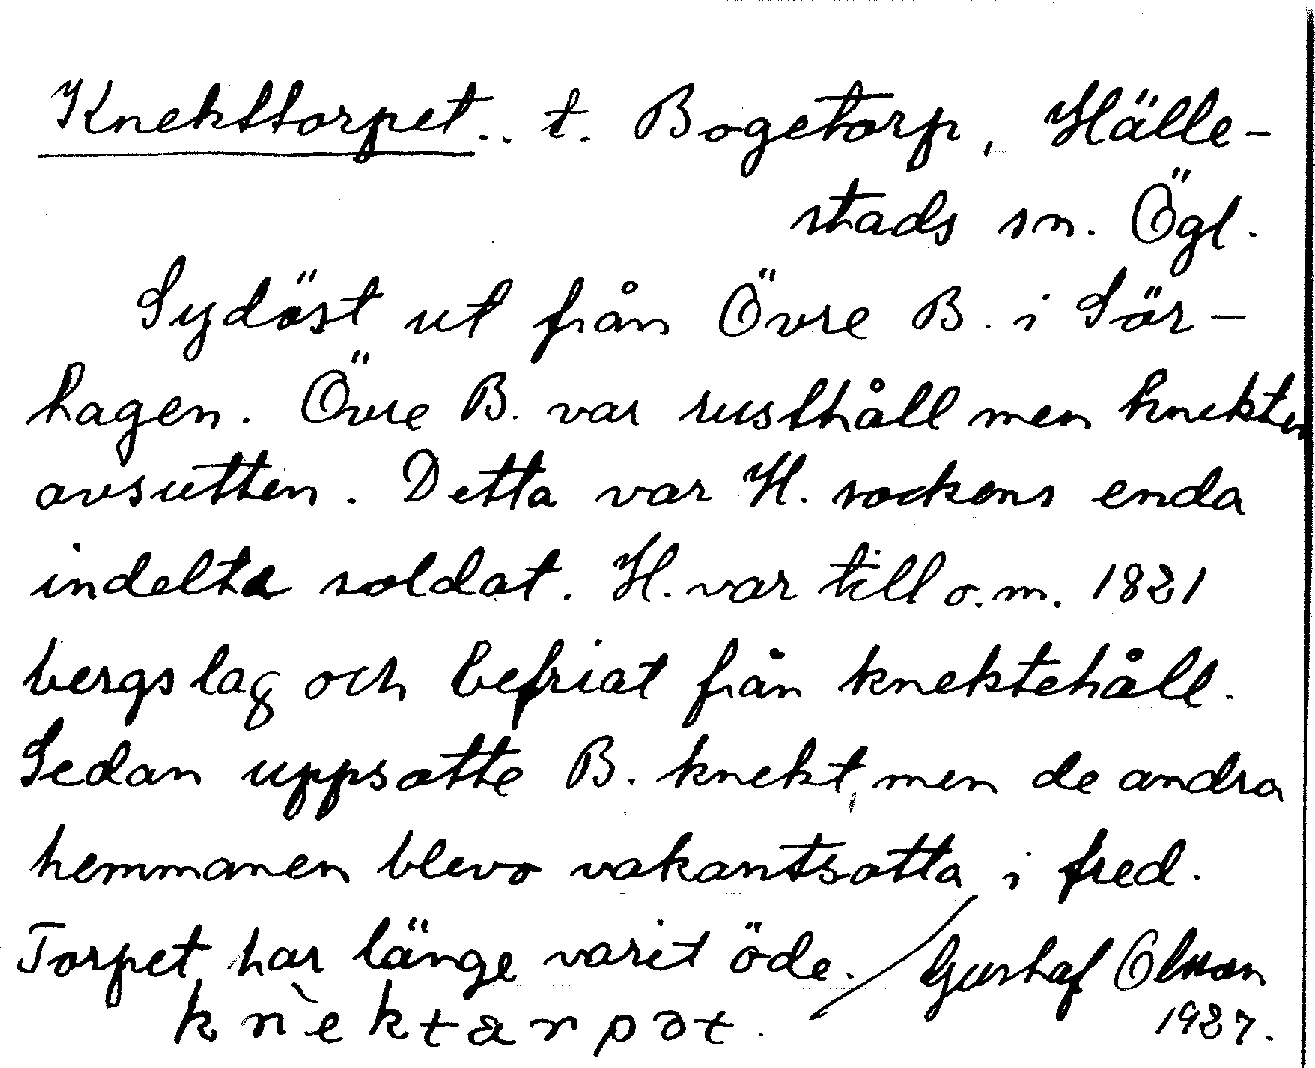 Knekttorpet.. t. Bogetorp, Hälle-
stads sn. Ögl.
Sydöst ut från Övre B. i Sör-
hagen. Övre B. var rusthåll men knekten
avsutten. Detta var H. sockens enda
indelta soldat. H. var till o. m. 1821
bergslag och befriat från knektehåll.
Sedan uppsatte B. knekt, men de andra
hemmanen blevo vakantsatta i fred.
Torpet har länge varit öde. / Gustaf Olsson
1927.